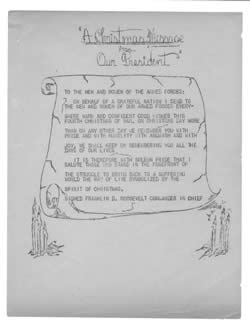 "A Christmas Message
from
Our President"
TO THE MEN AND WOMEN OF THE ARMED FORCES:
ON BEHALF OF A GRATEFUL NATION I SEND TO
THE MEN AND WOMEN OF OUR ARMED FORCES EVERY-
WHERE WARM AND CONFIDENT GOOD WISHES THIS
FOURTH CHRISTMAS OF WAR. ON CHRISTMAS DAY MORE
THAN ON ANY OTHER DAY WE REMEMBER YOU WITH
PRIDE AND WITH HUMILITY WITH ANGUISH AND WITH
JOY. WE SHALL KEEP ON REMEMBERING YOU ALL THE
DAYS OF OUR LIVES.
IT IS THEREFORE WITH SOLEMN PRIDE THAT I
SALUTE THOSE WHO STAND IN THE FOREFRONT OF
THE STRUGGLE TO BRING BACK TO A SUFFERING
WORLD THE WAY OF LIFE SYMBOLIZED BY THE
SPIRIT OF CHRISTMAS.
SIGNED FRANKLIN D. ROOSEVELT COMMANDER IN CHIEF